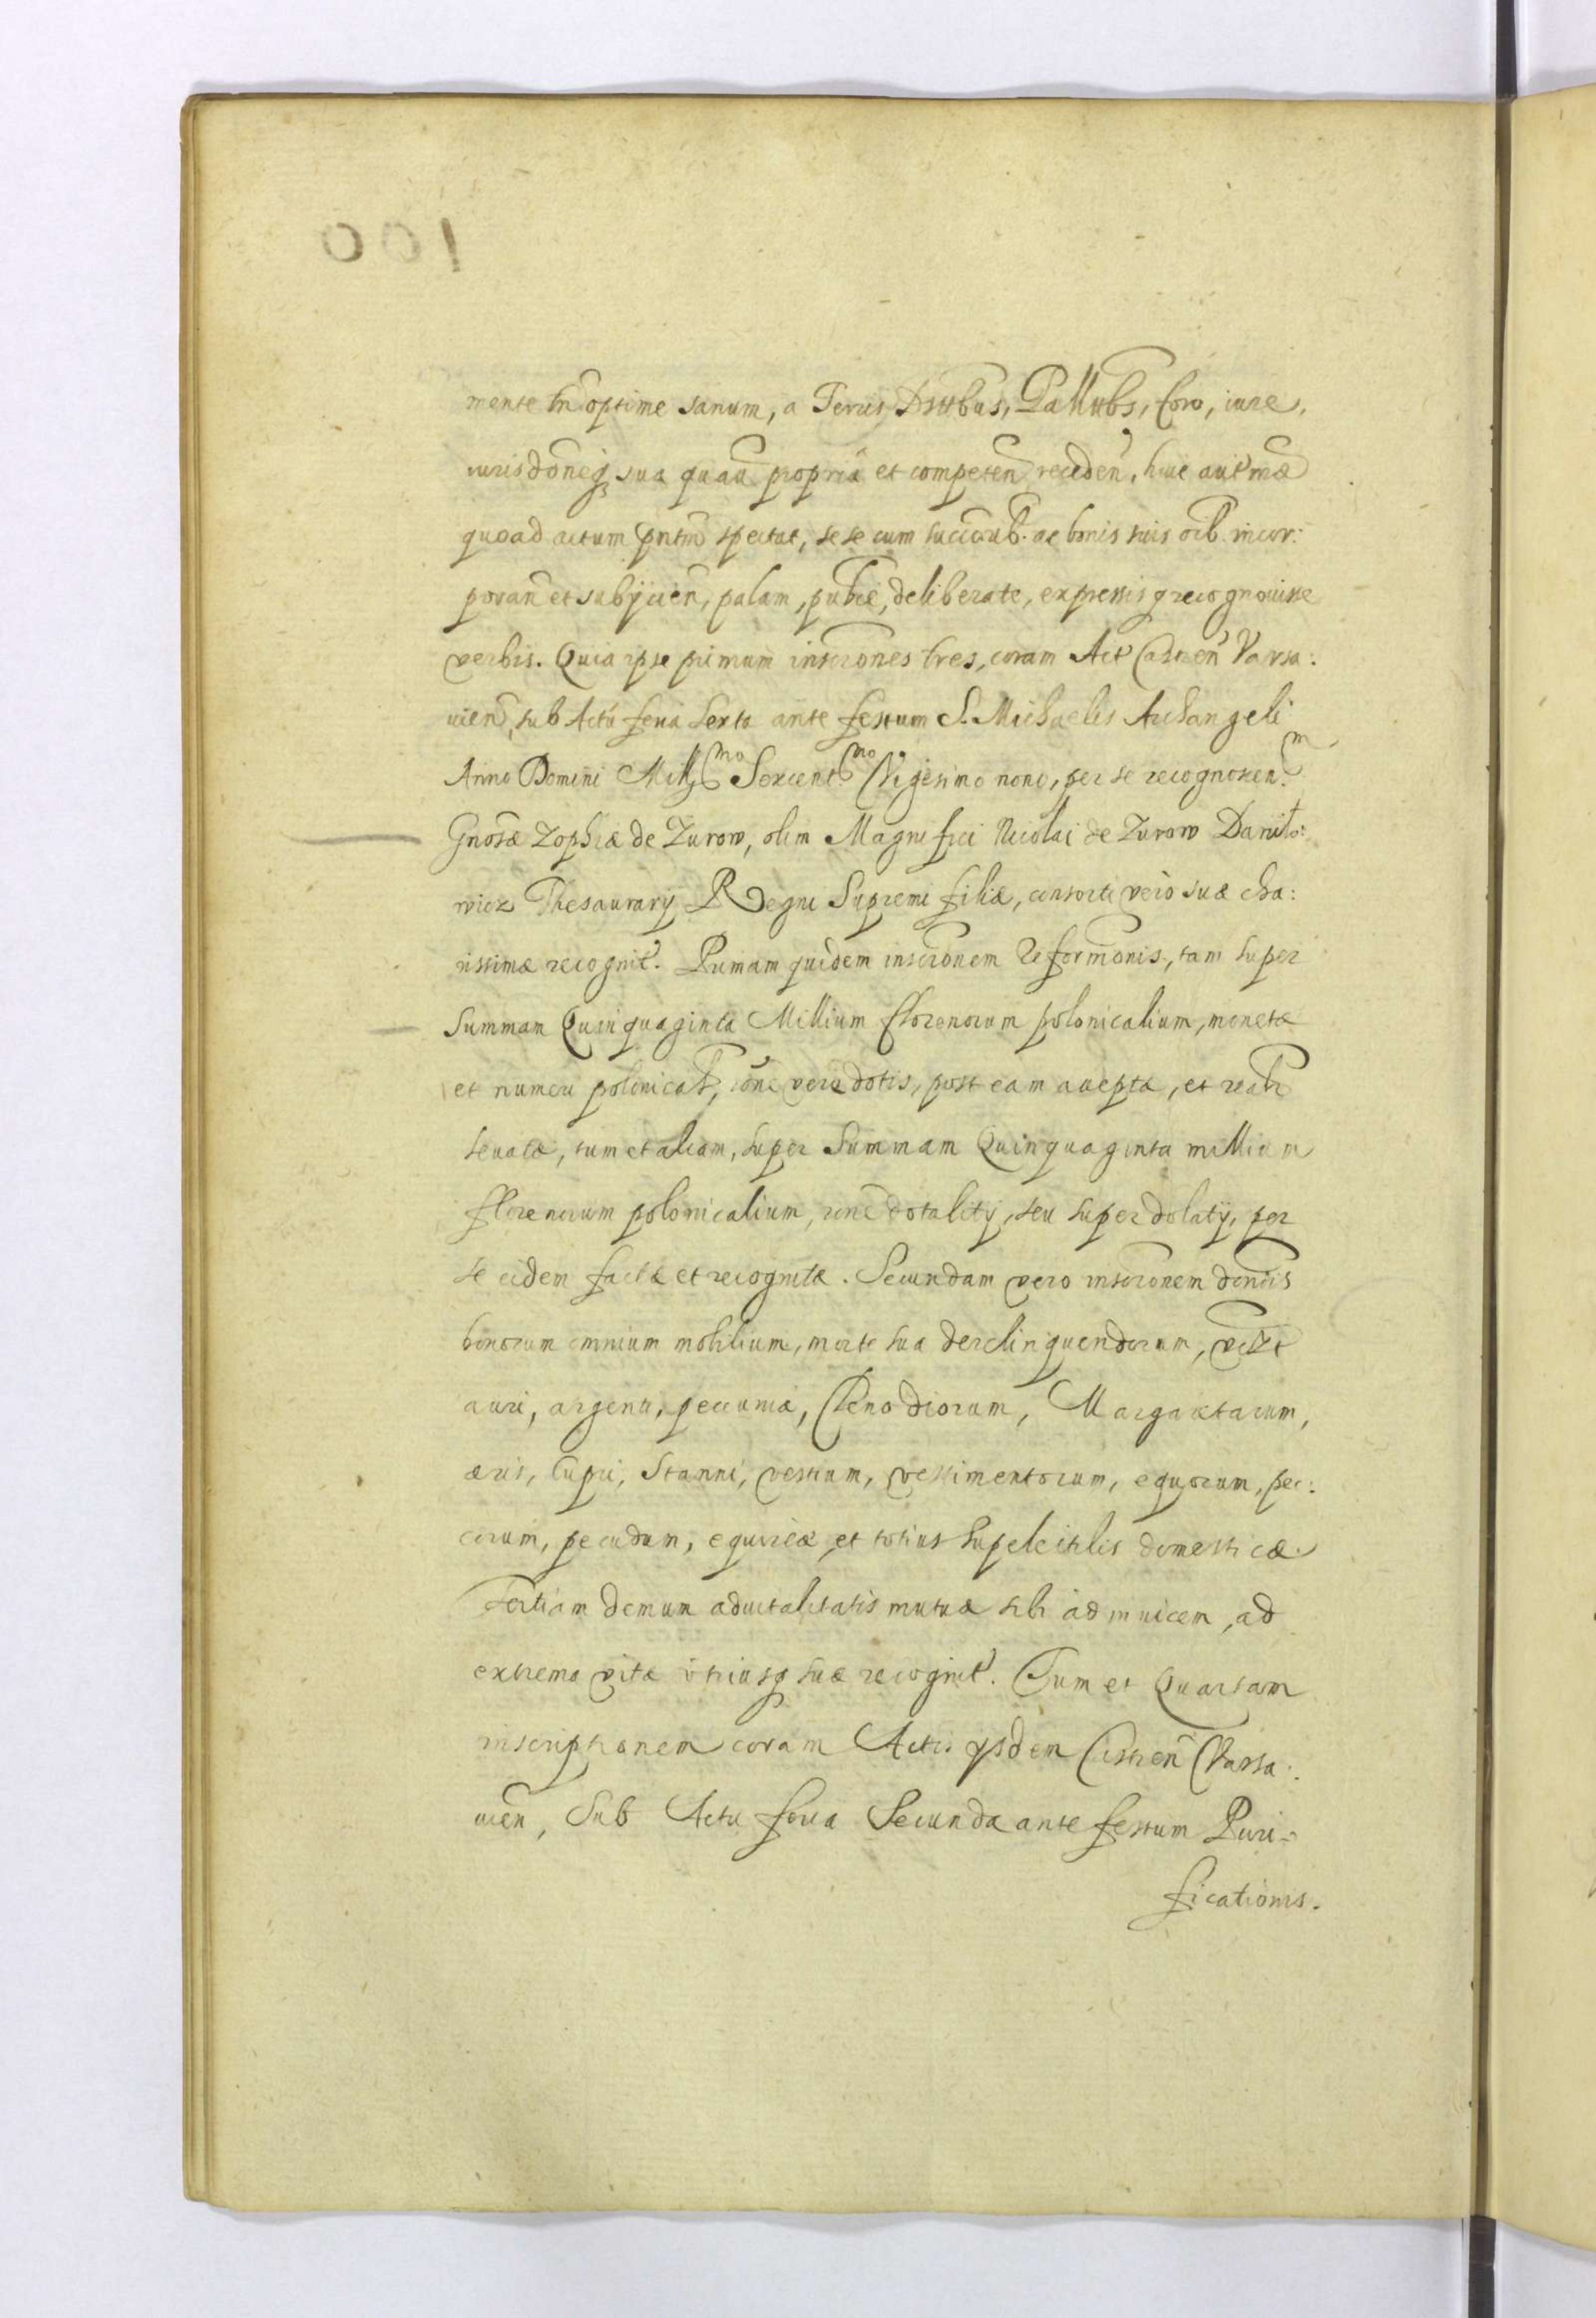 mente tñ optime sanum, a Terris Dsttbus, Pallttbs, foro, iure,
iurisdõneq̃ sua quauã propria et competeñ recedeñ, huic aut mõ
quoad actum pñtm spectat, se se cum succõrib. ac bonis suis oib. incor:
porañ et subijcieñ, palam, publcè, deliberate, expressis q recognouisse
verbis. Quia ipse primum inscrõnes tres, coram Act Castreñ Varsa:
uieñ, sub Actũ feria Sexta ante festum S. Michaelis Archangeli
Anno Domini Mill͞mo Sexcent͞mo Vigesimo nono, per se recognoscen.m
Gnosæ Zophiæ de Zurow, olim Magnifici Nicolai de Zurow Daniło:
wicz Thesaurarij Regni Supremi filiæ, consorti vero suæ cha:
rissimæ recognit. Primam quidem inscrõnem Reformõnis, tam super
Summam Quinquaginta Millium florenorum polonicalium, monetæ
et numeri polonical, rõne vero dotis, post eam accepta, et realr
leuatæ, tum et aliam, super Summam Quinquaginta millium
florenorum polonicalium, rõne dotalitij, seu super dotatij, per
se eidem factæ et recognitæ. Secundam vero inscrõnem donõis
bonorum omnium mobilium, morte sua derelinquendorum, vdlzt
auri, argenti, pecuniæ, Clenodiorum, Margaretarum,
æris, Cupri, Stanni, vestium, vestimentorum, equorum, pec:
corum, pecudum, equireæ, et totius supelectilis domesticæ.
Tertiam demum aduitalitatis mutuæ sibi ad inuicem, ad
extrema vitæ vtriusq suæ recognit. Tum et Quartam
inscriptionem coram Actis ijsdem Castreñ Varsa:
uien, Sub Actu feria Secunda ante festum Puri-
ficationis.
100